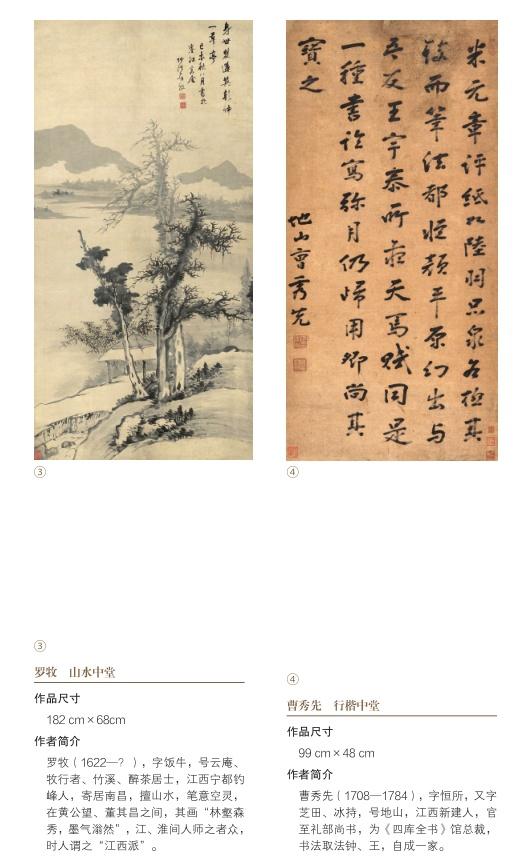 米元章評紙如陸羽品泉各極其
致而筆法都從顏平原幻出与
吾友王宇泰所藏天馬賦同是
一種書臨寫弥月仍歸用卿尚其
寶之
地山曹秀先
③
④
③
罗牧 山水中堂
作品尺寸
182 cm×68cm
作者简介
罗牧（1622—？），字饭牛，号云庵、
牧行者、竹溪、醉茶居士，江西宁都钓
峰人，寄居南昌，擅山水，笔意空灵，
在黄公望、董其昌之间，其画“林壑森
秀，墨气滃然”，江、淮间人师之者众，
时人谓之“江西派”。
④
曹秀先 行楷中堂
作品尺寸
99 cm×48 cm
作者简介
曹秀先（1708—1784），字恒所，又字
芝田、冰持，号地山，江西新建人，官
至礼部尚书，为《四库全书》馆总裁，
书法取法钟、王，自成一家。